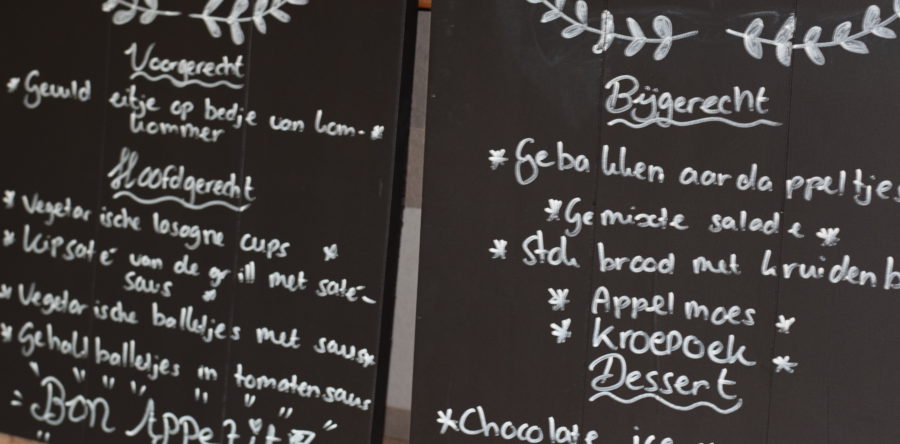 Voorgerecht
* Gevuld eitje op bedje van kom-*
kommer
Hoofdgerecht
* Vegetarische lasagne cups *
* Kipsaté van de grill met saté-
saus *
* Vegetarische balletjes met saus*
* Gehaktballetjes in tomatensaus
Bon Appetit
Bijgerecht
* Gebakken aardappeltjes
* Gemixte salade *
* Stok brood met kruidenb
* Appelmoes *
* Kroepoek *
Dessert
*Chocolate ice